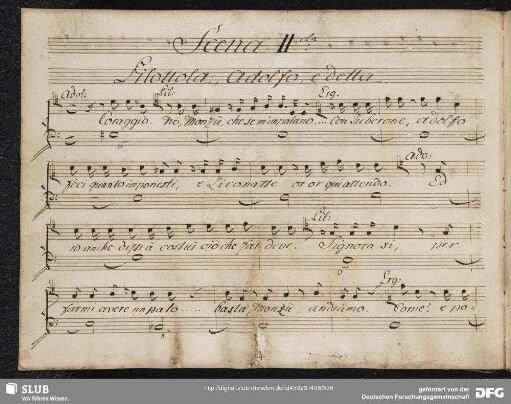 Scena II.da
Lilottola, Adolfo, e detta
Adol: Lil: Erg:
Coraggio. No, Monzù, che se m'impalano.... Con Suberone, Adolfo
Ado:
feci quanto imponesti, e Liconatte or or qui attendo. Ed
Lil:
io anche dissi a costui ciò che far deve. Signora sì, per
Erg:
farmi avere un palo..... basta, Monzù, andiamo. Come! e po-
SLUB
Wir führen Wissen.
gefördert von der
Deutschen Forschungsgemeinschaft
DFG